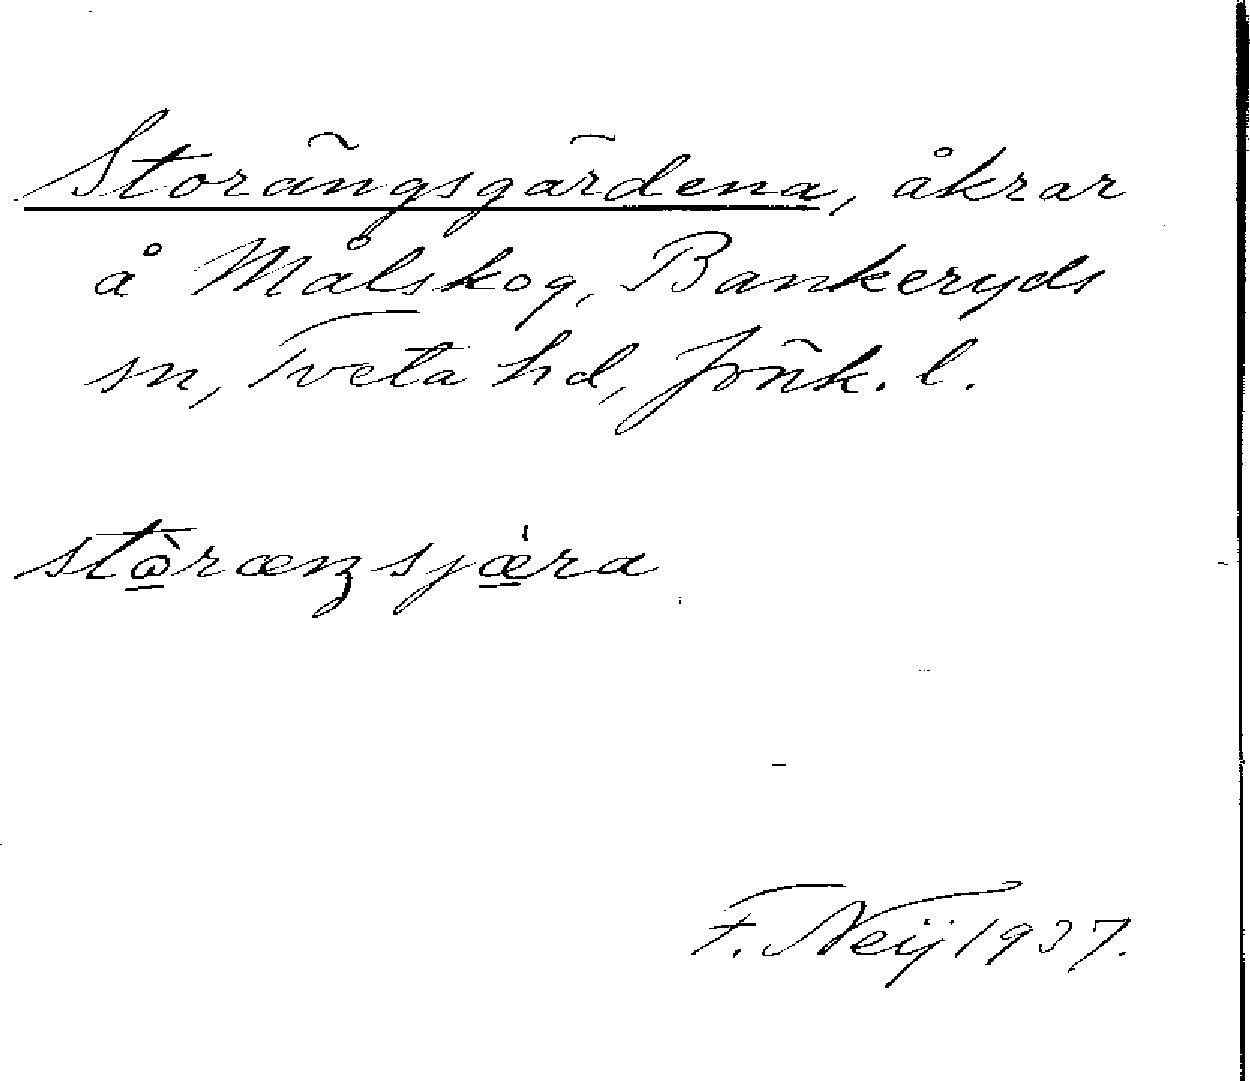 Storängsgärdena, åkrar
å Målskog, Bankeryds
sn, Tveta hd, Jönk. l.
stò̱ræŋsjǽ̱ra
F. Neij 1937.